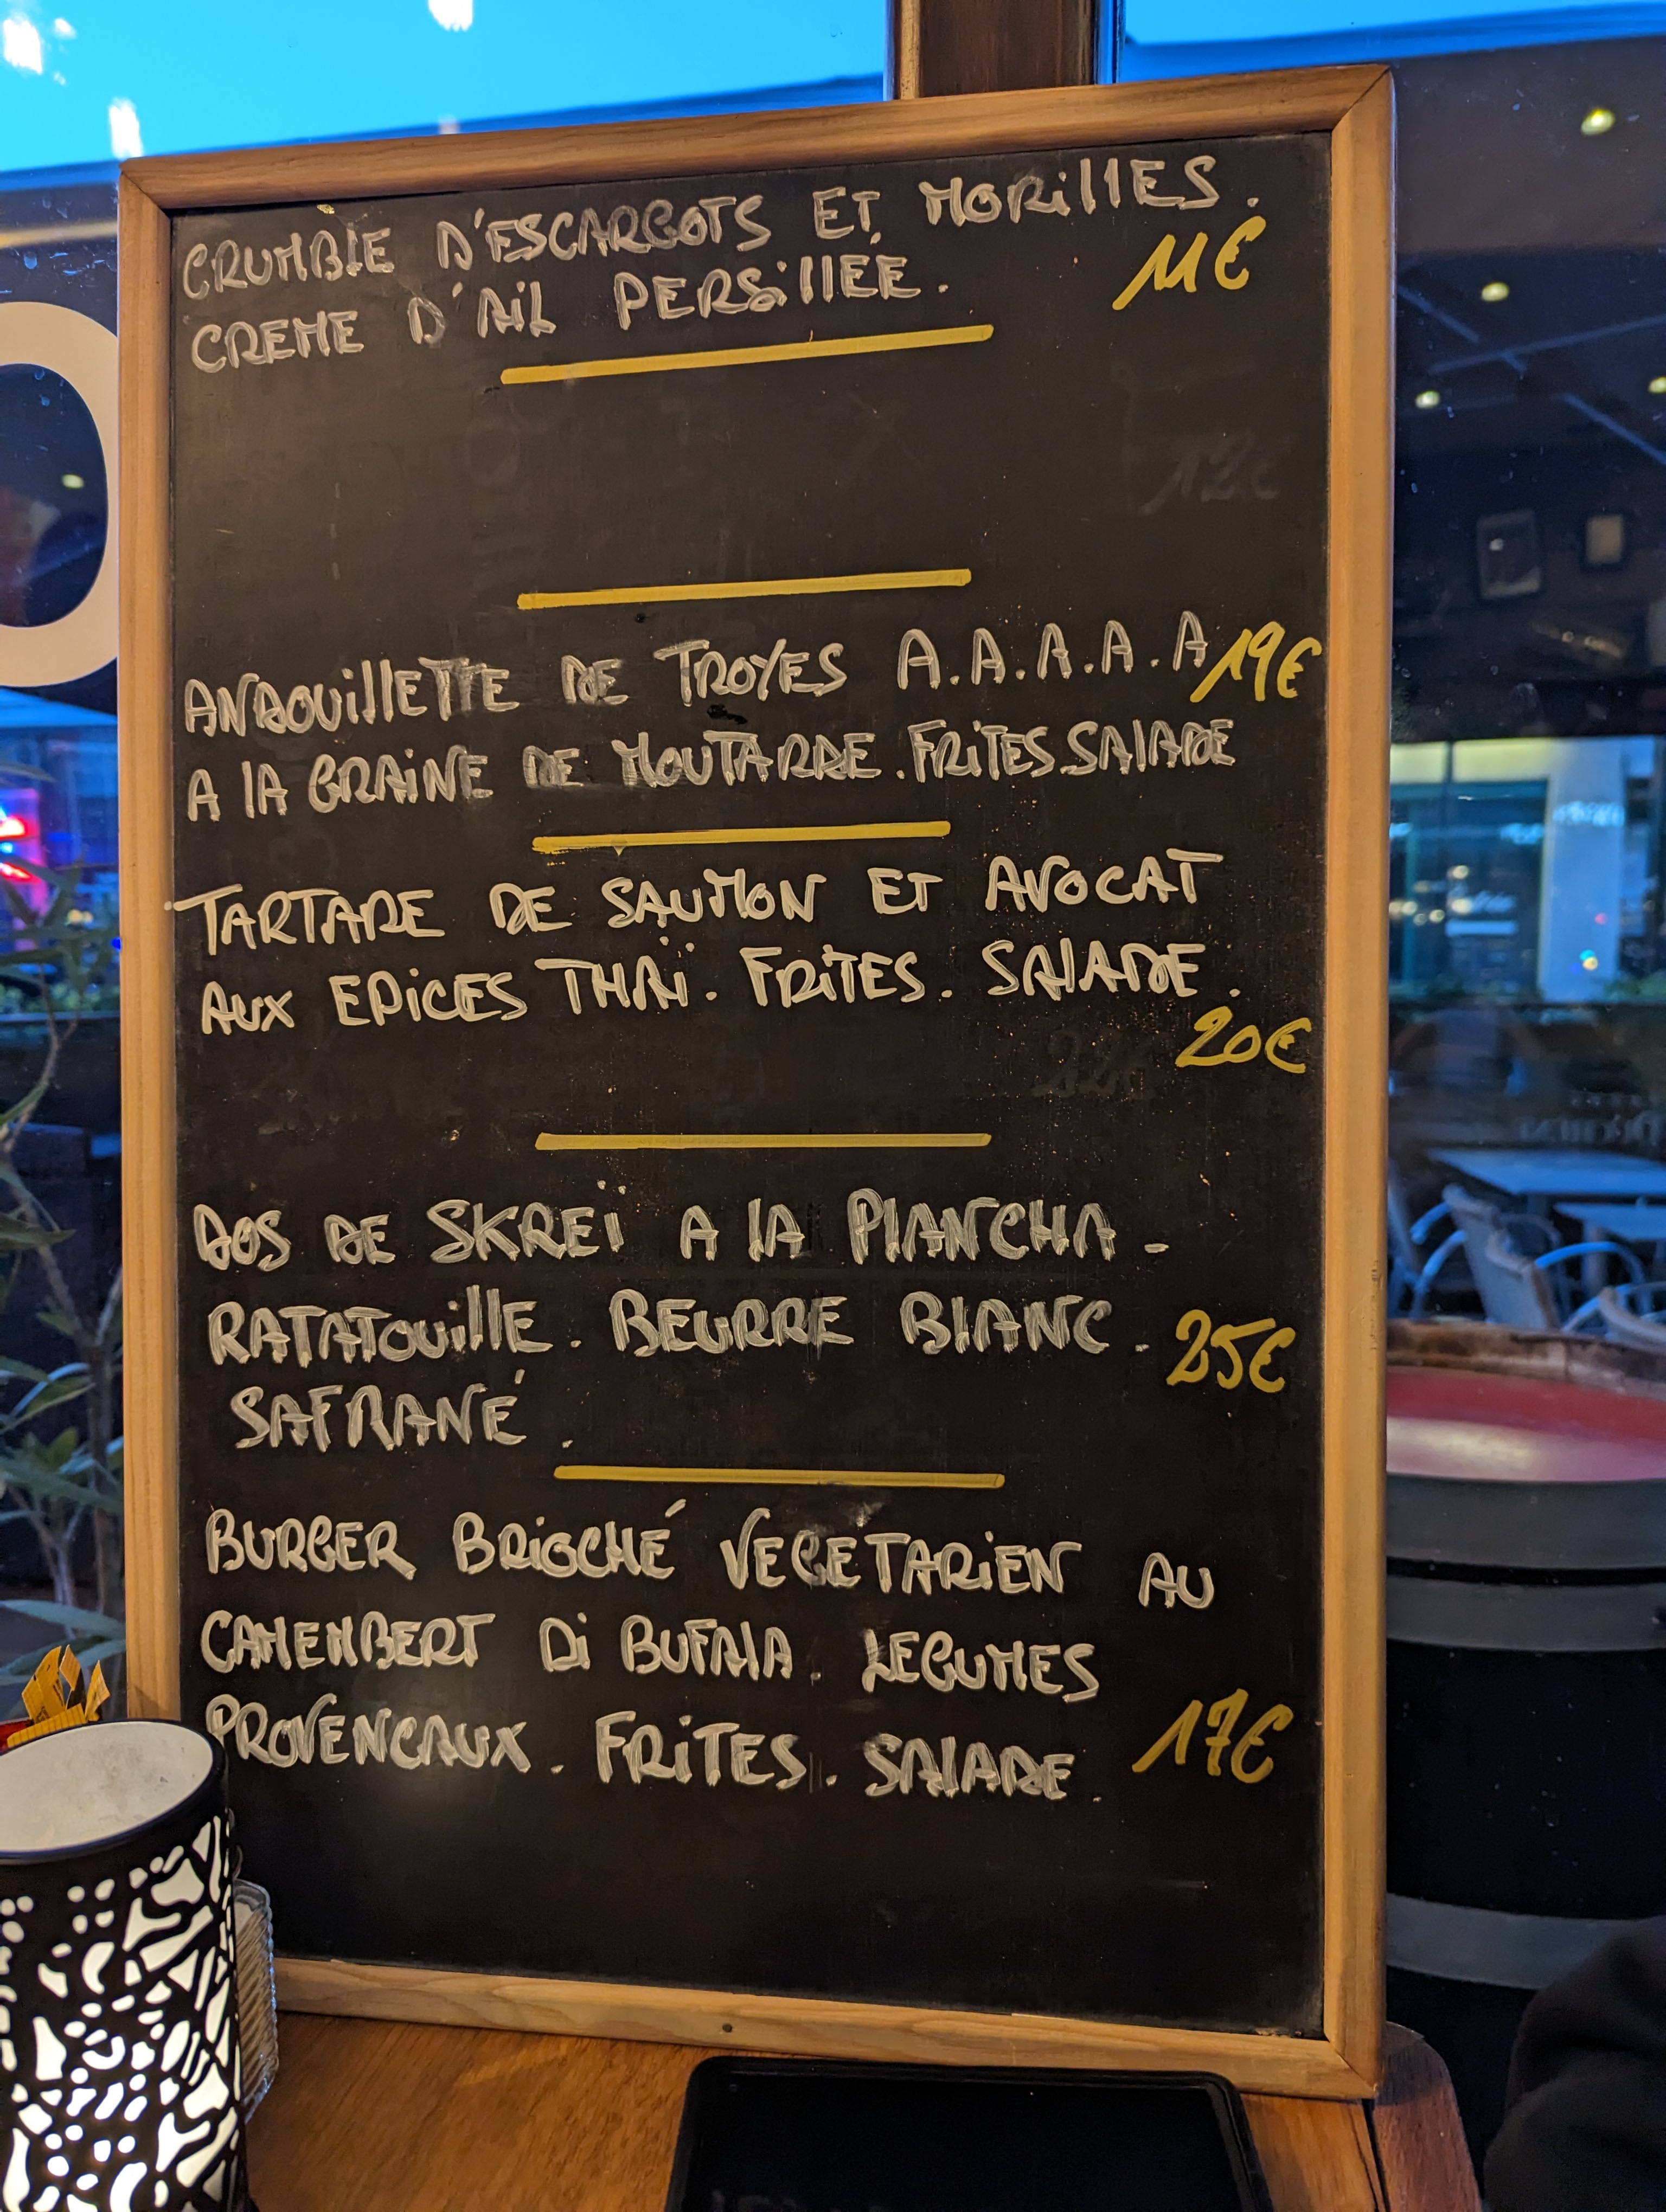 CRUMBLE D'ESCARGOTS ET MORILLES.
CREME D'AIL PERSILLÉE. 11€
12€
ANDOUILLETTE DE TROYES A.A.A.A.A 19€
A LA GRAINE DE MOUTARDE.FRITES SALADE
TARTARE DE SAUMON ET AVOCAT
AUX EPICES THAÏ. FRITES. SALADE.
20€
22€
DOS DE SKREÏ A LA PLANCHA -
RATATOUILLE. BEURRE BLANC. 25€
SAFRANÉ.
BURGER BRIOCHÉ VEGETARIEN AU
CAMEMBERT Di BUFALA. LEGUMES
PROVENCAUX. FRITES. SALADE. 17€